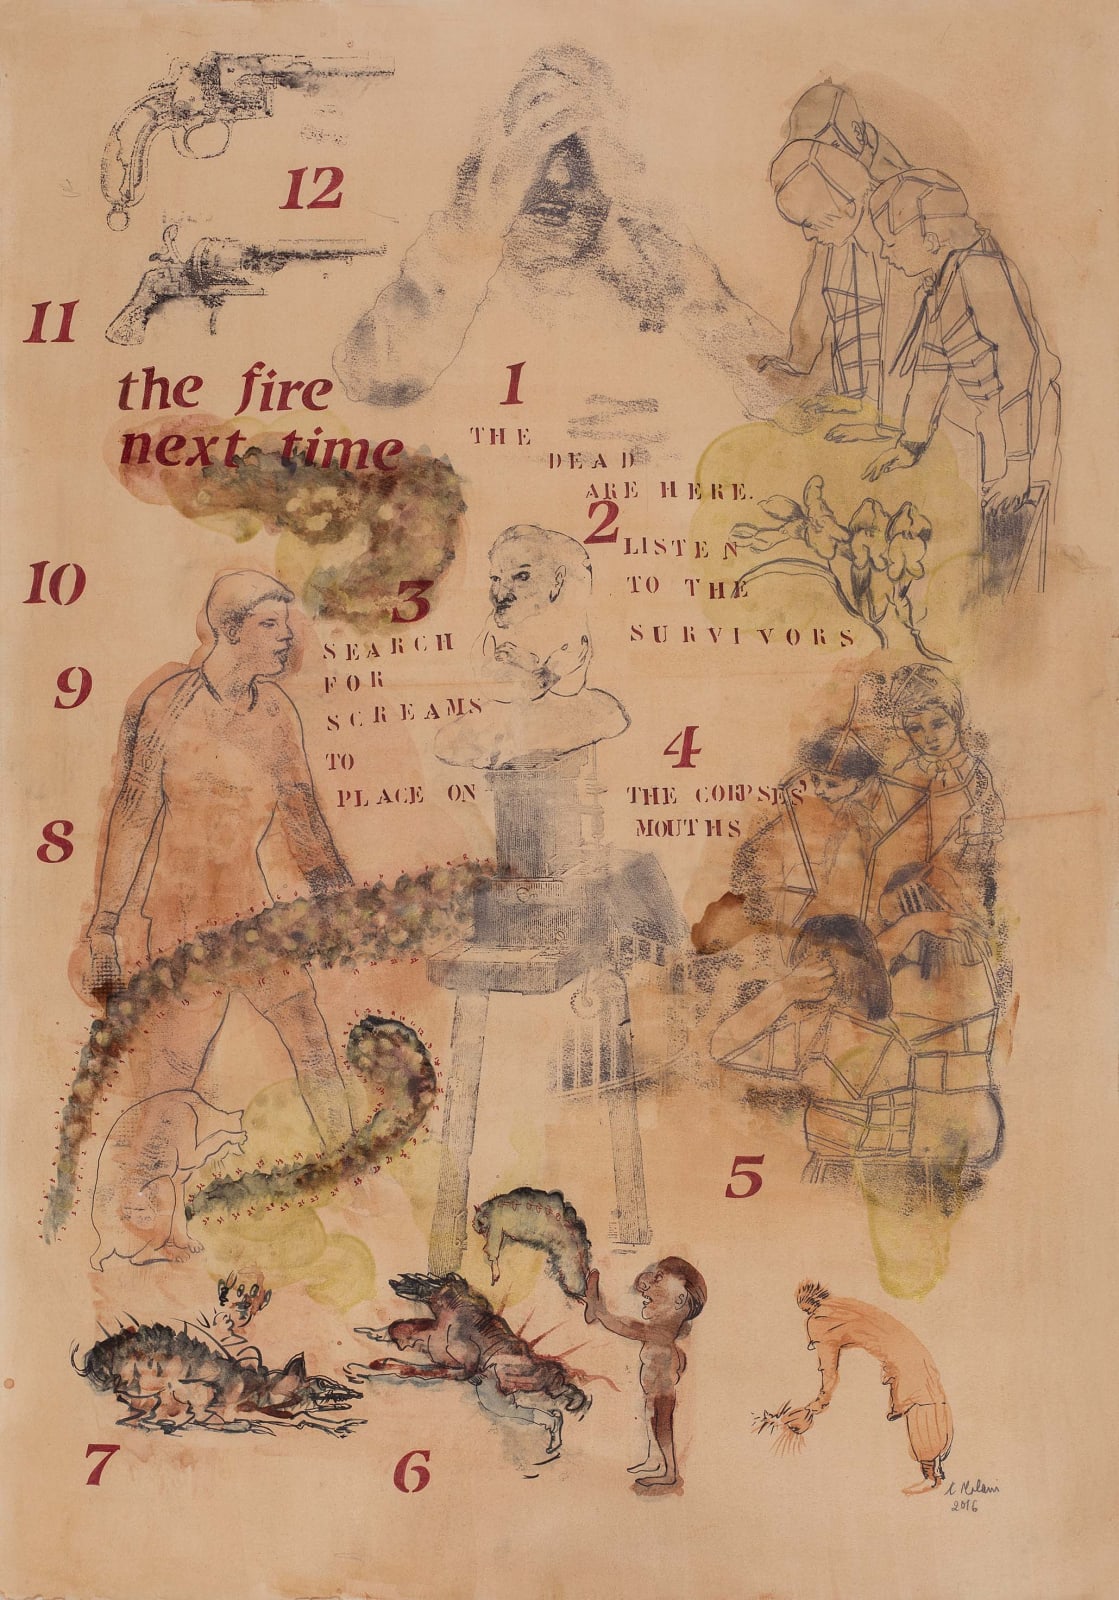 12
11
the fire
next time
1
THE
DEAD
ARE HERE.
2
LISTEN
TO THE
SURVIVORS
10
3
SEARCH
FOR
SCREAMS
TO
PLACE ON
9
4
THE CORPSES'
MOUTHS
8
5
7
6
2016